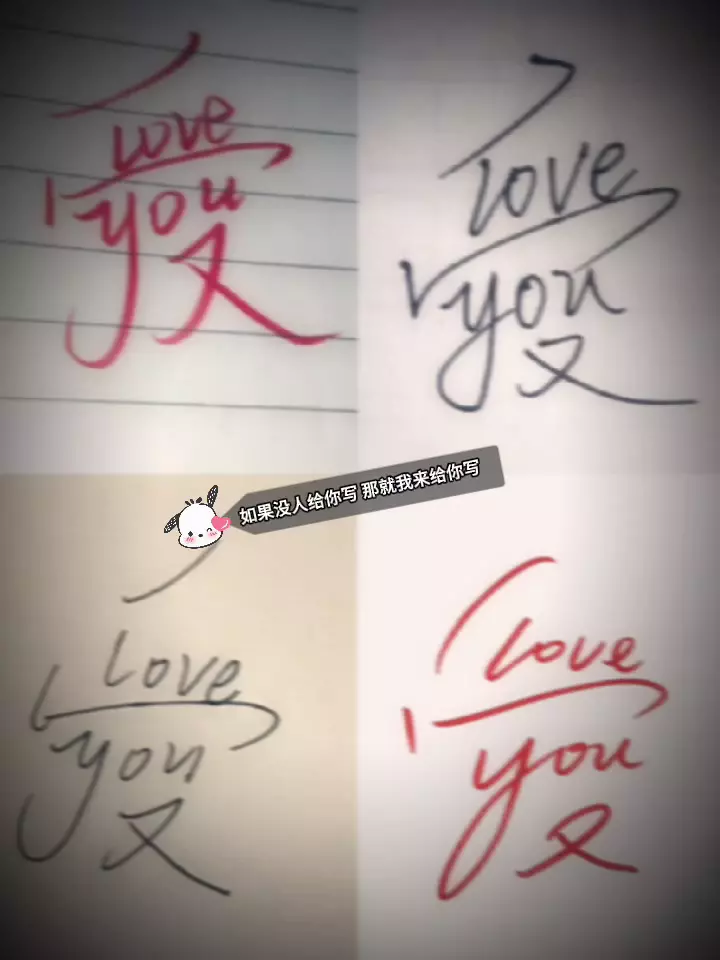 love
you
又
love
you
又
如果没人给你写 那就我来给你写
love
you
又
love
you
又